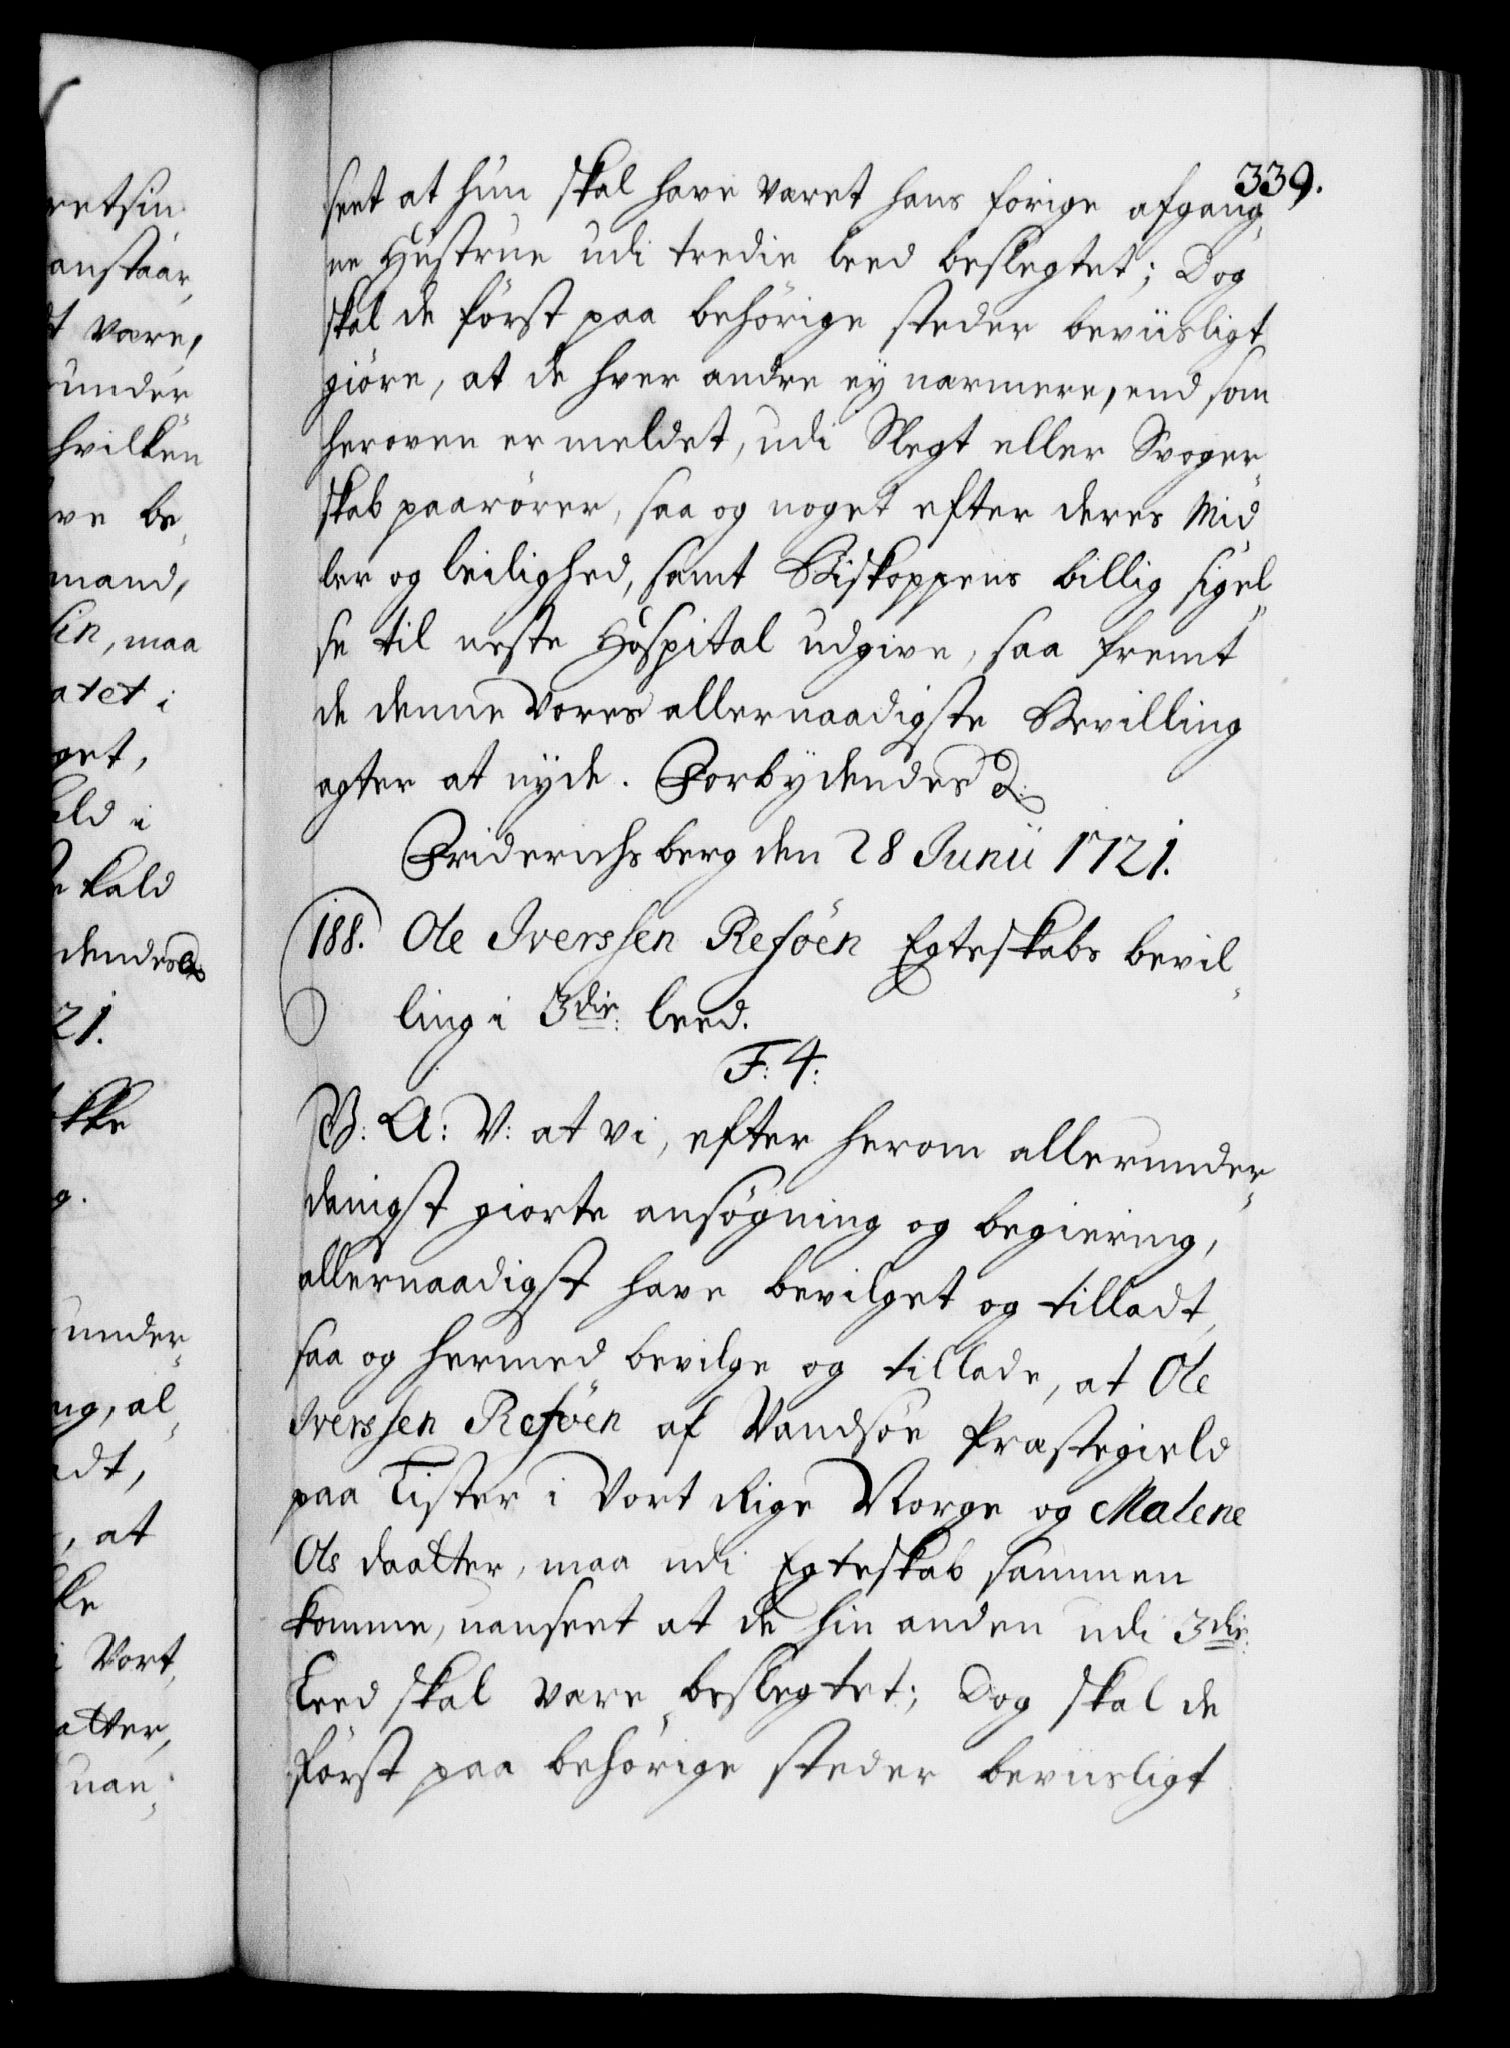 339.
seet at hun skal have været hans forige afgang„
ne Hustrue udi tredie leed beslegtet; Dog
skal de först paa behörige steder beviisligt
giöre, at de hver andre ey nærmere, end som
heroven er meldet, udi Slegt eller Svoger„
skab paarörer, saa og noget efter deres Mid„
ler og leilighed, samt Biskoppens billig sigel„
se til neste Hospital udgive, saa fremt
de denne Vores allernaadigste Bevilling
agter at nyde. Forbydendes &
Friderichsberg den 28 Junii 1721.
188. Ole Iverssen Reföen Egteskabs bevil„
ling i 3die leed.
F: 4:
G: A: V: at vi, efter herom allerunder„
danigst giorte ansögning og begiering,
allernaadigst have bevilget og tilladt,
saa og hermed bevilge og tillade, at Ole
Iverssen Reföen af Vandsöe Præstegield
paa Lister i Vort Rige Norge og Malene
Ols daatter, maa udi Egteskab sammen
komme, uanseet at de hin anden udi 3die
Leed skal være beslegtet; Dog skal de
först paa behörige steder beviisligt
retsin
anstaar,
dt være,
under
hvilken
ve be„
mand,
sin, maa
atet i
get,
ald i
kald
dendes &
21.
kke
g.
under„
ng, al„
adt,
, at
ke
i Vort,
atter,
uan„